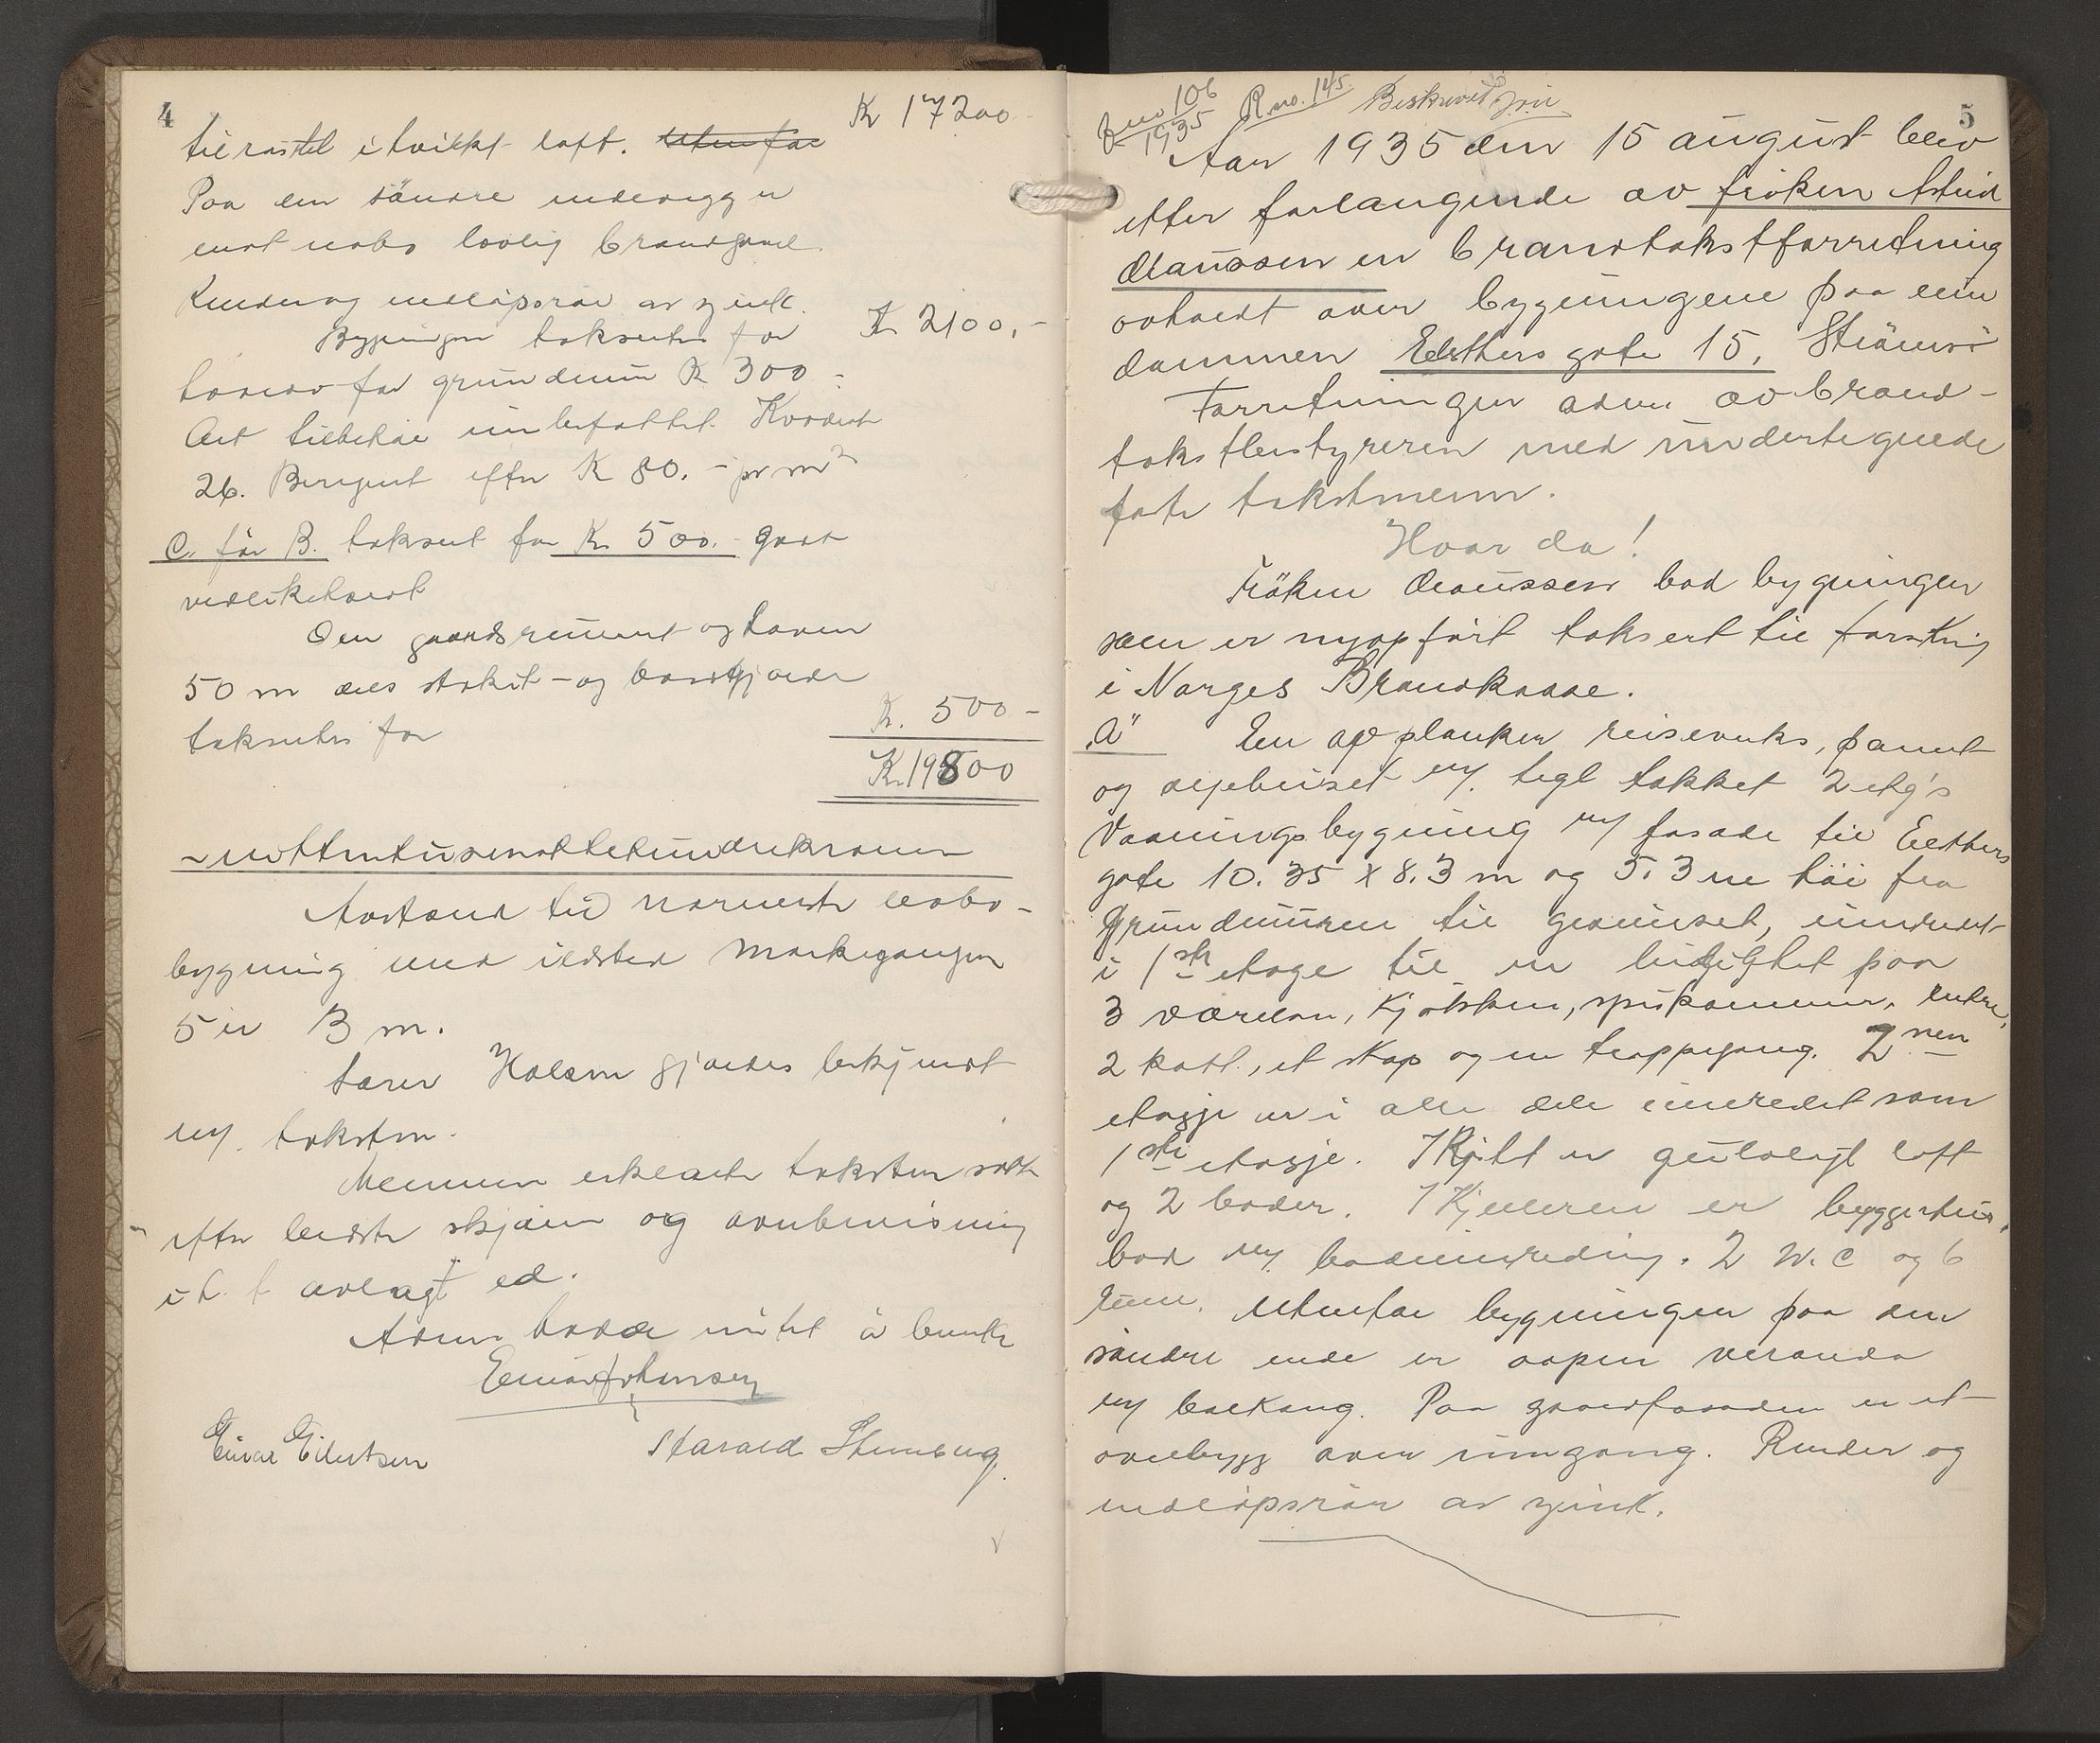 4
Kr 17200
til rastet i tvilkt loft. Utenfor
Paa den söndre endevegg er
mot nabo lovlig brandgavl.
Render og nedløpsrør av zink.
Bygningen takseres for Kr 2100,-
herav for grundmur K 300 -
Alt tilbehör iberfattet. Kvadrat
26. Beregnet efter K 80.- pr m²
C. för B. taksert for Kr 500.- godt
vedlikeholdt
Om gaardsrummet og haven
50 m dels stakit- og bordgjærde
takseres for
Kr. 500 -
Kr. 19800
nittentusenottehundrekroner
Avstand til nærmeste nabo-
bygning med ildsted Markegangen
5 er 3 m.
Holsen gjordes bekjendt
m/ taksten.
Mennene erklærte taksten satt
efter bedste skjøn og overbevisning
i h. t. avlagt ed.
Adm. hadde intet å bemerke
Einar Johnsen
Einar Eilertsen Harald Stenberg
5
J no 106 R. no. 145. Beskrevet
1935
Aar 1935 den 15 august blev
etter forlangende av fröken Astrid
Claussen en brandtakstforretning
avholdt over bygningene paa eien
dommen Eekthers gate 15, Strömsö
Forretningen adm. av brand-
takstbestyreren med undertegnede
faste takstmenn.
Hvor da!
Fröken Claussen bad bygningen
som er nyopfört taksert til forsikring
i Norges Brandkasse.
"A" En av planker reisverks, panelt
og oljebeiset m/. tegl tækket 2 etg's
Vaaningsbygning m/ fasade til Eekthers
gate 10.35 x 8.3 m og 5.3 m höi fra
Grundmuren til gesimset, inredet
i 1ste etage til en leilighet paa
3 værelser, kjökken, spiskammer, entre,
2 kott, et skap og en trappegang. 2nen
etasje er i alle dele inredet som
1ste etasje. I Kvist er gulvlagt loft
og 2 boder. I Kjelleren er bryggerhus,
bad m/ badeinredning. 2 W.C og 6
rum. Utenfor bygningen paa den
söndre ende er aapen veranda
m/ balkong. Paa gaardfasaden er et
overbygg over inngang. Render og
nedløpsrør av zink.